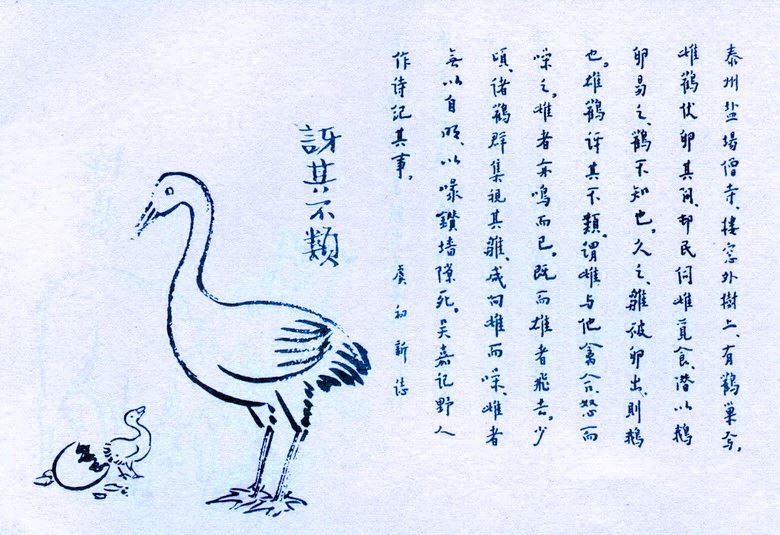 泰州盐場僧寺、楼窓外樹上、有鹳巢焉。
雌鹳伏卵其间、邨民伺雌覓食、潜以鹅
卵易之、鹳不知也。久之、雛破卵出、則鹅
也。雄鹳讶其不類、谓雌与他禽合、怒而
噪之。雌者亦鸣而已。既而雄者飛去。少
頃、诸鹳群集視其雛、咸向雌而噪、雌者
無以自明、以喙鑽墙隙死。吴嘉记野人
作诗记其事。 虞初新誌
訝其不類